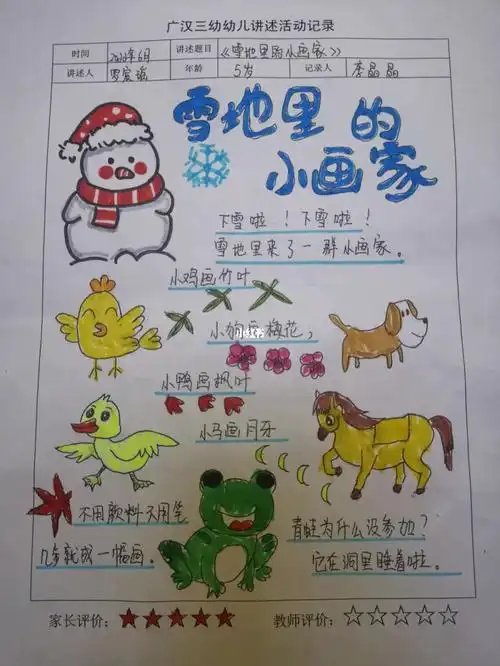 广汉三幼幼儿讲述活动记录
时间 2023年6月 讲述题目 《雪地里的小画家》
讲述人 罗宸瑀 年龄 5岁 记录人 李晶晶
雪地里的
小画家
下雪啦！下雪啦！
雪地里来了一群小画家。
小鸡画竹叶
小狗画梅花，
小鸭画枫叶
小马画月牙
不用颜料不用笔
几步就成一幅画。
青蛙为什么没参加？
它在洞里睡着啦。
家长评价：★★★★★ 教师评价：☆☆☆☆☆